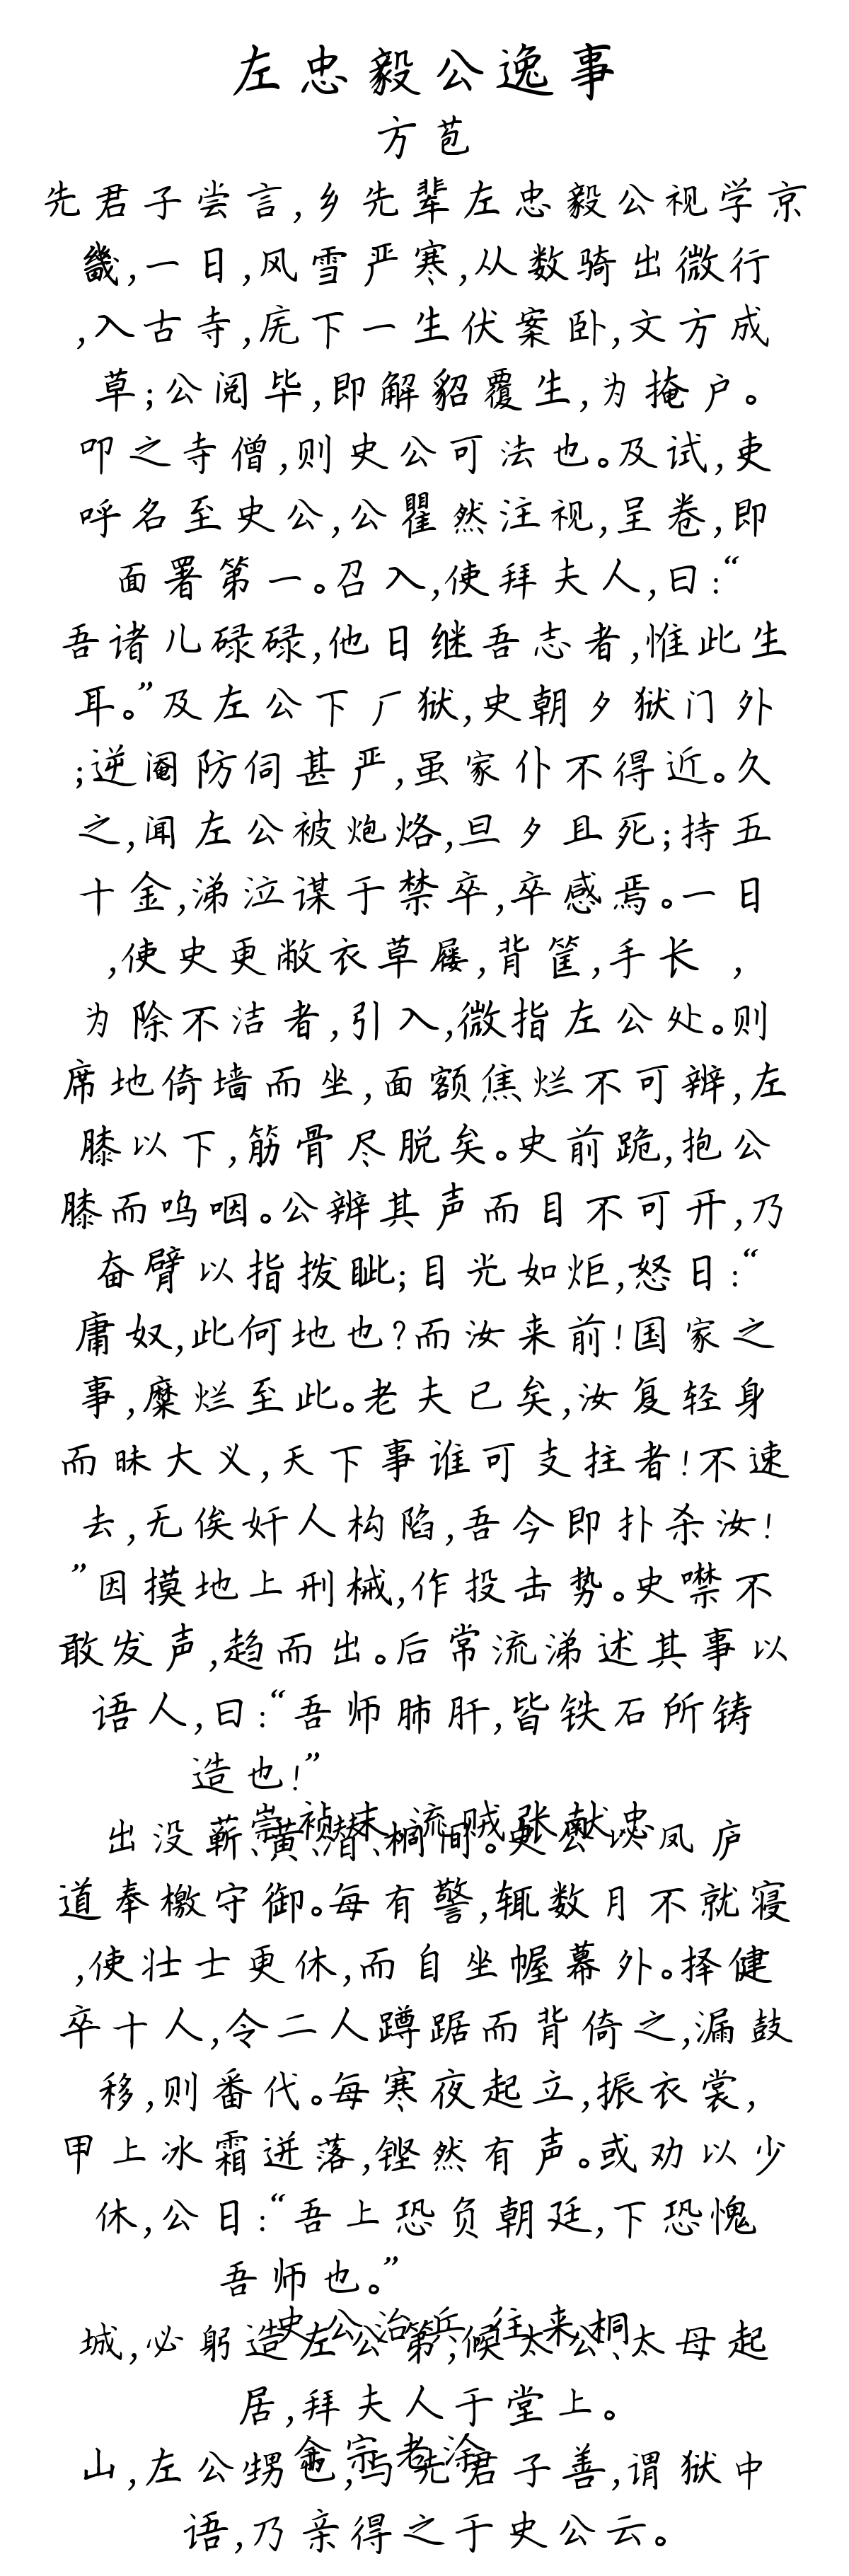 左忠毅公逸事
方苞
先君子尝言,乡先辈左忠毅公视学京
畿,一日,风雪严寒,从数骑出微行
,入古寺,庑下一生伏案卧,文方成
草;公阅毕,即解貂覆生,为掩户。
叩之寺僧,则史公可法也。及试,吏
呼名至史公,公瞿然注视,呈卷,即
面署第一。召入,使拜夫人,曰:“
吾诸儿碌碌,他日继吾志者,惟此生
耳。”及左公下厂狱,史朝夕狱门外
;逆阉防伺甚严,虽家仆不得近。久
之,闻左公被炮烙,旦夕且死;持五
十金,涕泣谋于禁卒,卒感焉。一日
,使史更敝衣草屦,背筐,手长 ,
为除不洁者,引入,微指左公处。则
席地倚墙而坐,面额焦烂不可辨,左
膝以下,筋骨尽脱矣。史前跪,抱公
膝而呜咽。公辨其声而目不可开,乃
奋臂以指拨眦;目光如炬,怒曰:“
庸奴,此何地也?而汝来前!国家之
事,糜烂至此。老夫已矣,汝复轻身
而昧大义,天下事谁可支拄者!不速
去,无俟奸人构陷,吾今即扑杀汝!
”因摸地上刑械,作投击势。史噤不
敢发声,趋而出。后常流涕述其事以
语人,曰:“吾师肺肝,皆铁石所铸
造也!”
崇祯末,流贼张献忠
出没蕲、黄、潜、桐间。史公以凤庐
道奉檄守御。每有警,辄数月不就寝
,使壮士更休,而自坐幄幕外。择健
卒十人,令二人蹲踞而背倚之,漏鼓
移,则番代。每寒夜起立,振衣裳,
甲上冰霜迸落,铿然有声。或劝以少
休,公曰:“吾上恐负朝廷,下恐愧
吾师也。”
史公治兵,往来桐
城,必躬造左公第,候太公、太母起
居,拜夫人于堂上。
余宗老涂
山,左公甥也,与先君子善,谓狱中
语,乃亲得之于史公云。